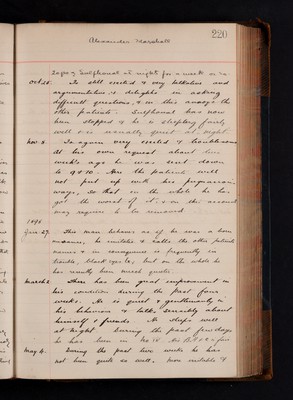 220
Alexander Marshall
20 grs of Sulphonal at night for a week or so
Oct 28. Is still excited & very talkative and
argumentative & delights in asking
difficult questions, & in this annoys the
other patients. Sulphonal has now
been stopped & he is sleeping fairly
well & is usually quiet at night.
Nov. 8. Is again very excited & troublesome
At his own request about two
week's ago he was sent down
to 9 & 10. Here the patients will
not put up with his
ways, so that on the whole he has
got the worst of it & on this account
may require to be removed.
1898
Jan 27. This man behaves as if he was a born
madman, he imitates & calls the other patients
names & in consequence is frequently in
trouble, black eyes &c, but on the whole he
has really been much quieter.
March 2. There has been great improvement in
his condition during the past four
weeks. He is quiet & gentlemanly in
his behaviour & talks sensibly about
himself & friends. He sleeps well
at night. During the past few days
he has been in No 12
May 4. During the past two weeks he has
not been quite so well. More irritable &